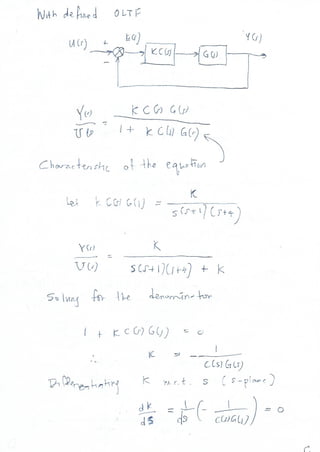 With defined OLTF
U(s) + − E(s) K C(s) G(s) Y(s)
Y(s)/U(s) = K C(s) G(s) / 1 + K C(s) G(s)
Characteristic of the equation
Let K C(s) G(s) = K / s(s+1)(s+4)
Y(s)/U(s) = K / s(s+1)(s+4) + K
Solving for the denominator
1 + K C(s) G(s) = 0
∴ K = − 1 / C(s) G(s)
Differentiating K w.r.t. s (s-plane)
dK/ds = 1/ds (− 1 / C(s)G(s)) = 0